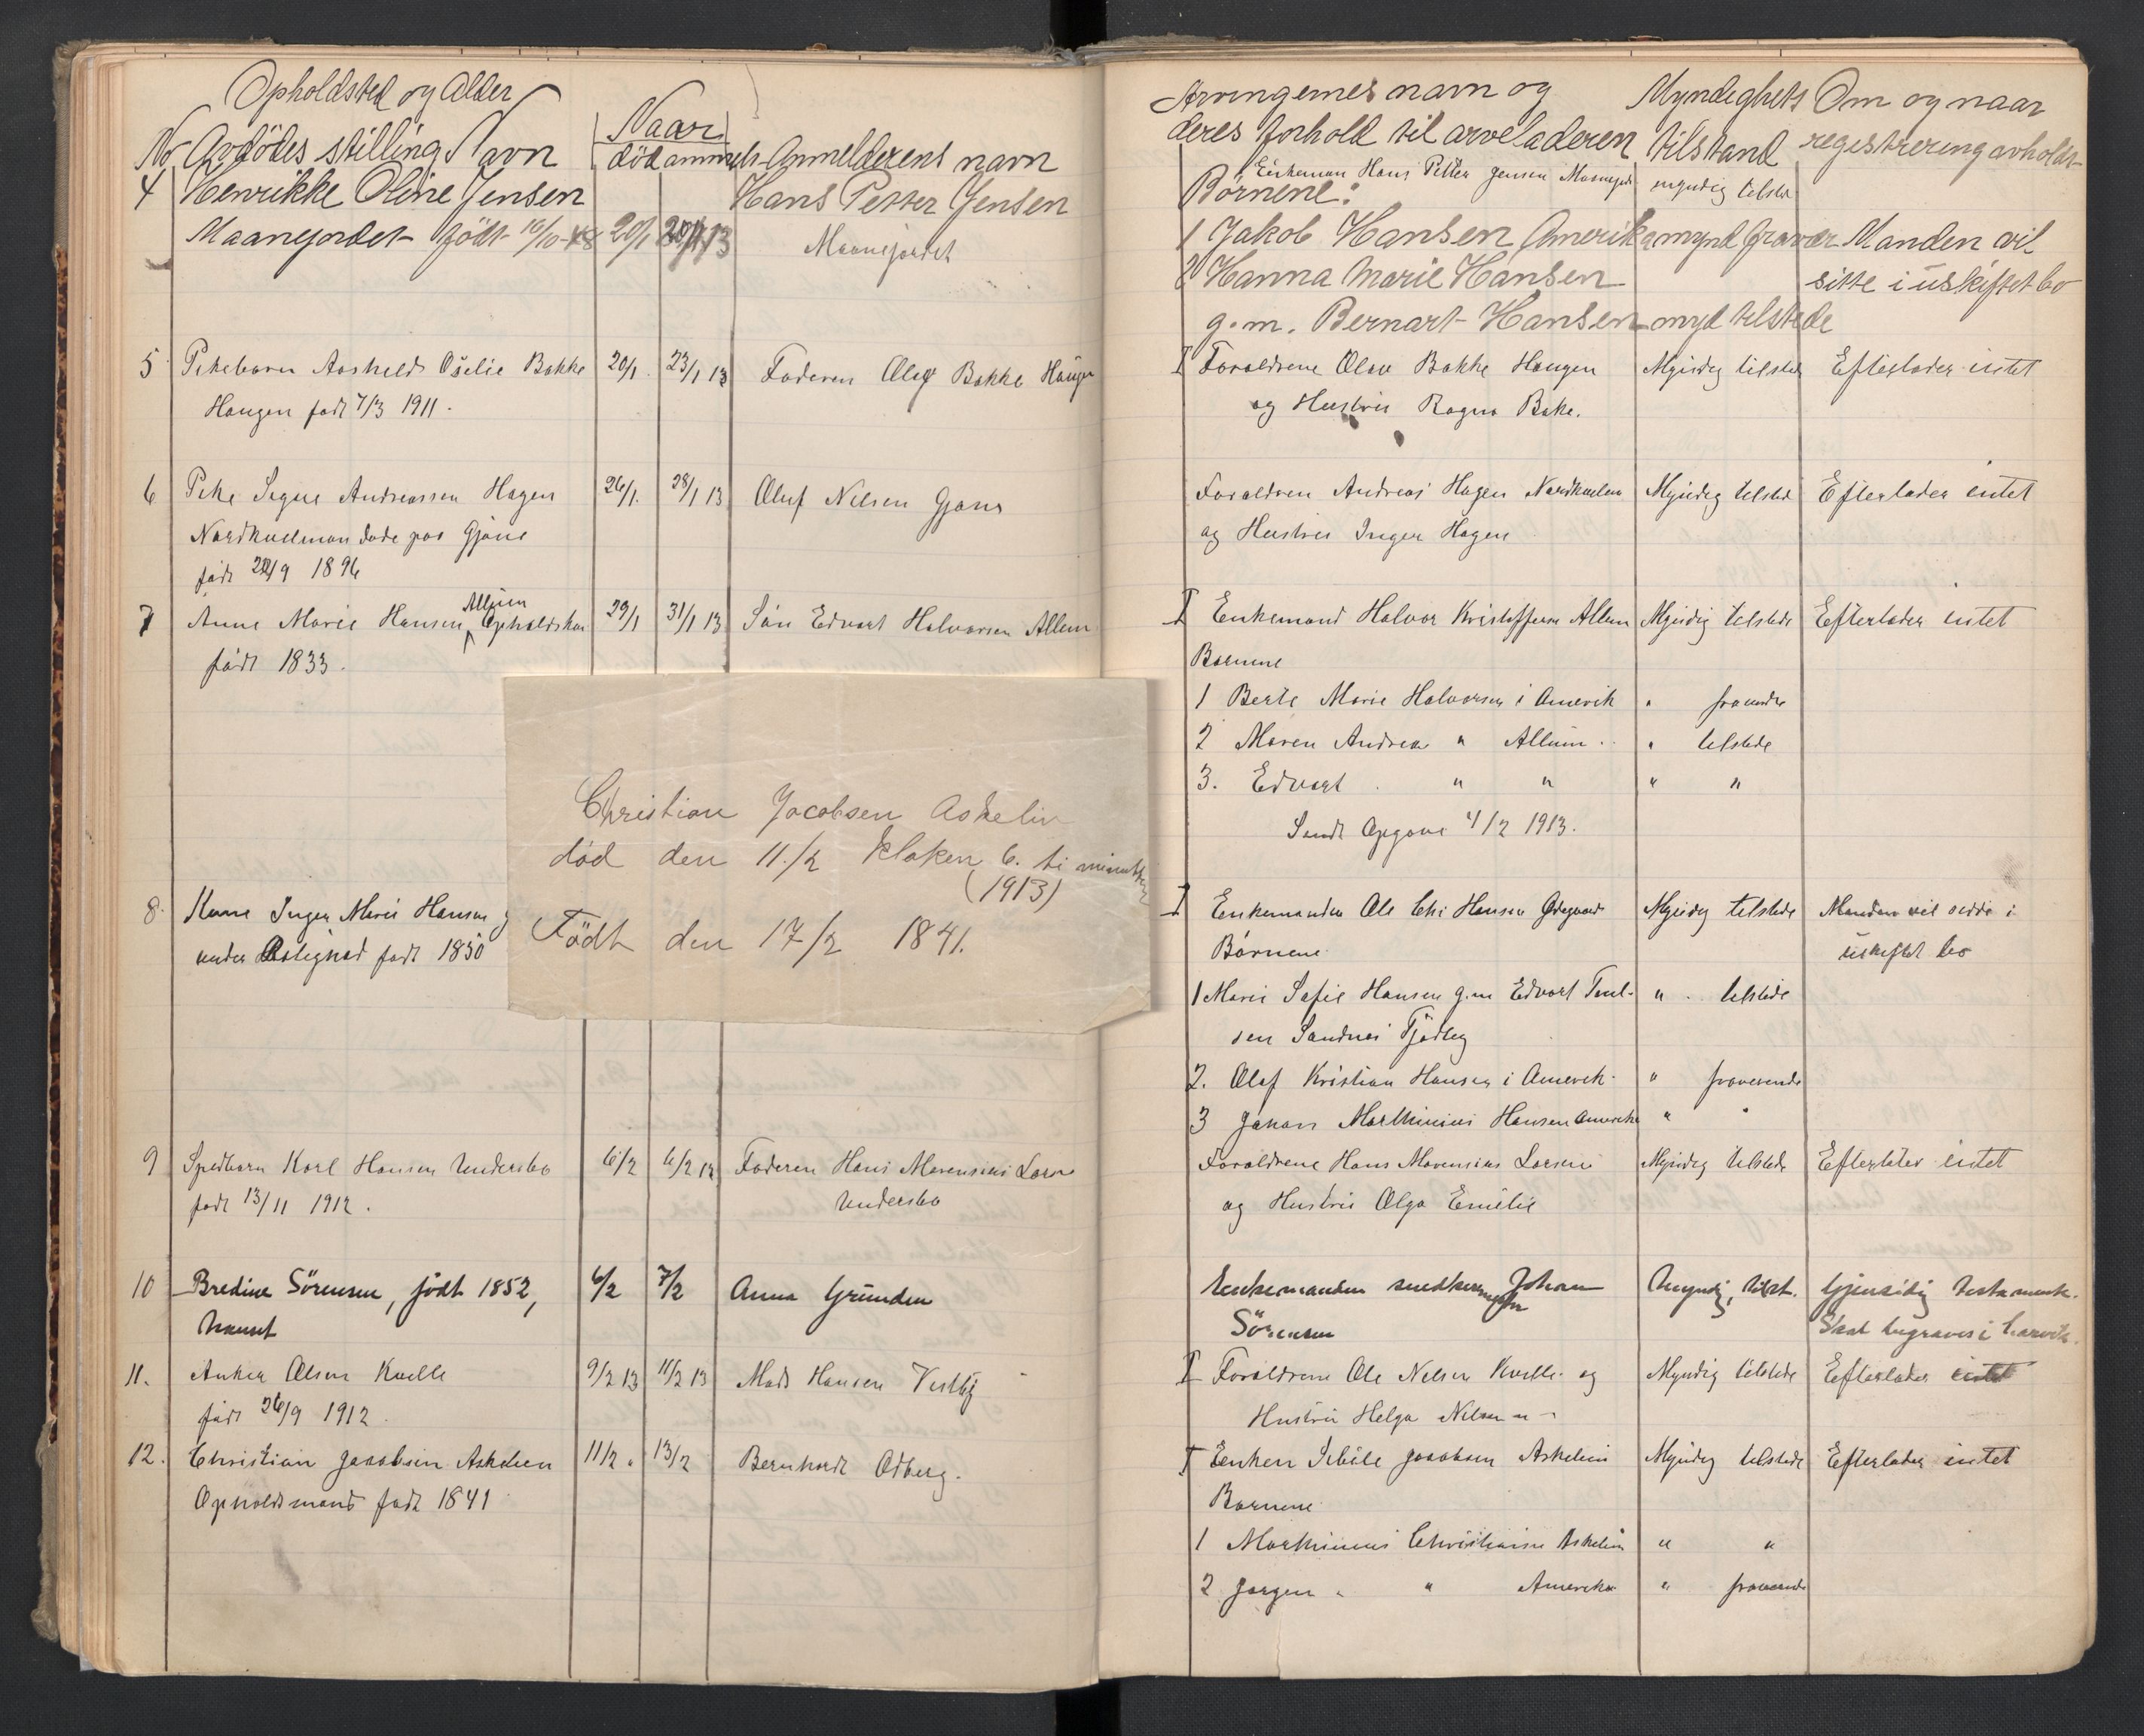 Opholdsted og Alder
No Avdödes stilling Navn
Naar
död anmelt Anmelderens navn
4 Henrikke Oline Jensen
Hans Petter Jensen
Maanejordet födt 16/10-48 20/1 20/1 13
Maanejordet
5 Pikebarn Aashild Oselie Bakke 20/1 23/1 13 Faderen Olaf Bakke Haugen
Haugen født 7/3 1911.
6 Pike Signe Andreassen Hagen 26/1. 28/1 13 Oluf Nilsen Gjøns
Nordkvelman døde paa Gjøne
født 9 1896
7 Anne Marie Hansen Allum Opholdskon 29/1 31/1 13 Søn Edvart Halvorsen Allum
født 1833.
Christian Jacobsen Askelin
död den 11./2 kloken 6. ti minutter
(1913)
Födt den 17/2 1841.
8. Kone Inger Marie Hansen
under født 1850
9 Spedbarn Karl Hansen Undersbo 6/2 6/2 13 Faderen Hans Marensius Larsen
født 13/11 1912. Undersbo
10 Bredine Sörensen, födt 1852, 6/2 7/2 Anna Grunden
11. Anker Olsen Kvelle 9/2 13 11/2 13 Mads Hansen Vestby
født 26/9 1912.
12. Christian Jacobsen Askelien 11/2. 13/2 Bernhardt Odberg.
Opholdsmand født 1841
Arvingernes navn og Myndighets Om og naar
deres forhold til arveladeren tilstand registrering avholdt
Enkeman Hans Petter Jensen myndig tilsted
Börnene:
1 Jakob Hansen Amerika mynd fravær Manden vil
2 Hanna Marie Hansen sitte i uskiftet bo
g.m. Bernart Hansen myd tilstede
I Foraldrene Olav Bakke Haugen Myndig tilstede Efterlader intet
og Hustru Ragna Bake.
Foraldren Andreas Hagen Nordkvelm Myndig tilsted Efterlader intet
og Hustru Inger Hagen
I Enkemand Halvor Kristoffersen Allum Myndig tilstede Efterlader intet
Børnene
1 Berte Marie Halvorsen i Amerik " fravende
2 Maren Andrea " Allum. " tilstede
3. Edvart " " " "
Sendt Opgave 4/2 1913.
I Enkemanden Ole Chr Hansen Ødegaard Myndig tilstede Manden vil sidde i
Børnene uskiftet bo
1 Marie Sofie Hansen g.m Edvart Paul- " tilstede
sen Sandnes Tjødling
2. Olaf Kristian Hansen i Amerik " fraverende
3 Johan Marthinius Hansen Amerika " "
Foraldrene Hans Marensius Larsen Myndig tilstede Efterlater intet
og Hustru Olga Emilie
Enkemanden snedkermester Johan Myndig, tilst. Gjensidig testament.
Sörensen Skal begraves i Larvik.
I Foraldrene Ole Nelsen Kvelle og Myndig tilstede Efterlader intet
Hustru Helga Nilsen "
I Enken Sibile Jacobsen Askelien Myndig tilstede Efterlader intet
Barnene
1 Marthinius Christiansen Askelin " "
2 Jørgen " " Amerika " fraverende